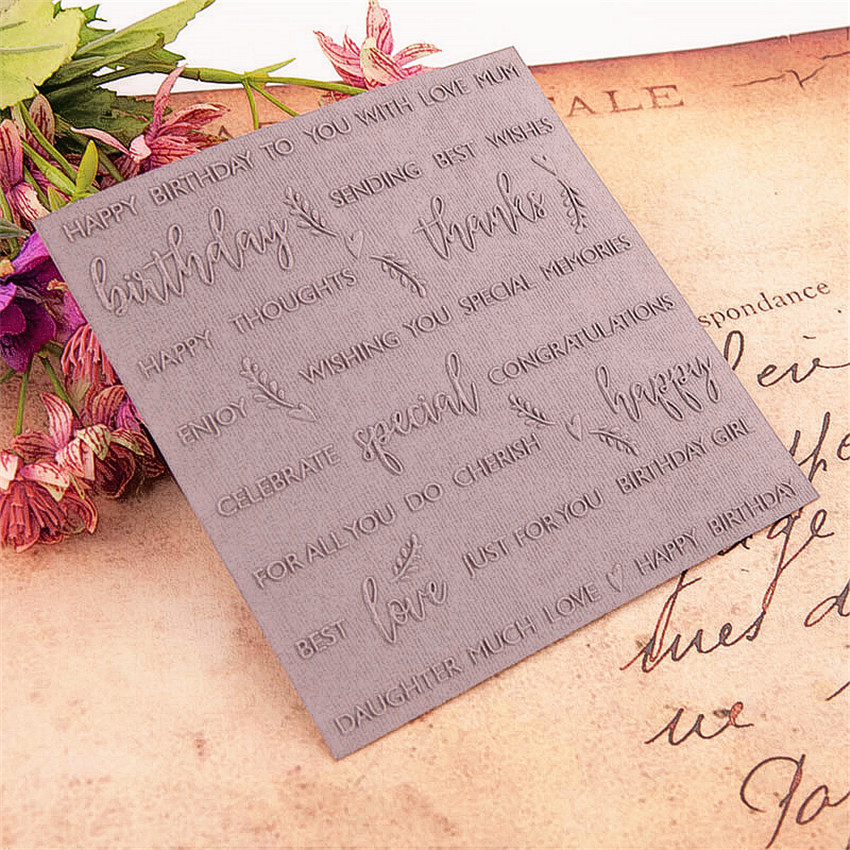 HAPPY BIRTHDAY TO YOU WITH LOVE MUM
birthday SENDING BEST WISHES
HAPPY THOUGHTS thanks
ENJOY WISHING YOU SPECIAL MEMORIES
CELEBRATE special CONGRATULATIONS
FOR ALL YOU DO CHERISH happy
BEST love JUST FOR YOU BIRTHDAY GIRL
DAUGHTER MUCH LOVE HAPPY BIRTHDAY
ALE
spondance